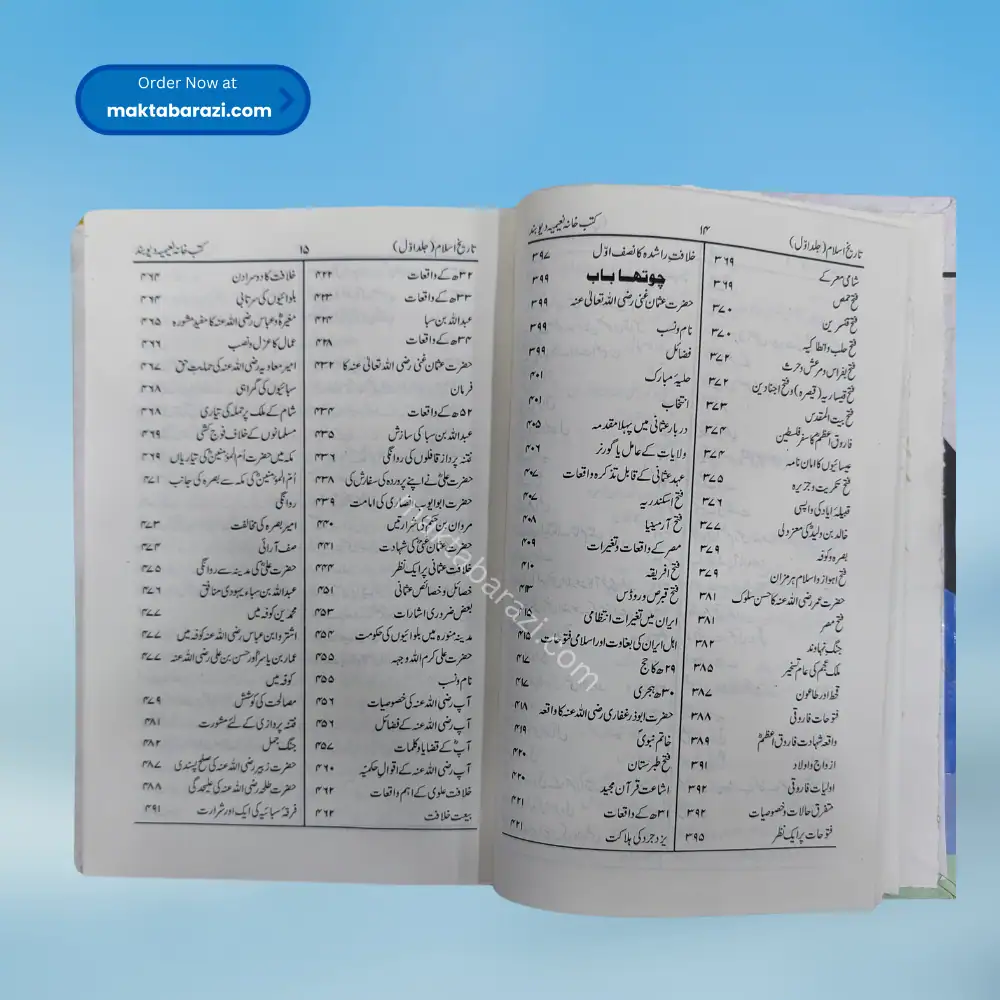 Order Now at
maktabarazi.com
تاریخ اسلام (جلد اوّل)
۱۴
کتب خانہ نعیمیہ دیوبند
۳۶۹
شامی معرکے ۳۶۹
فتح حمص ۳۷۰
فتح قنسرین ۳۷۰
فتح حلب و انطاکیہ ۳۷۲
فتح بفراس و مرعش و حرث ۳۷۲
فتح قیساریہ (قیصرہ) و فتح اجنادین ۳۷۳
فتح بیت المقدس ۳۷۴
فاروق اعظمؓ کا سفر فلسطین ۳۷۴
عیسائیوں کا امان نامہ ۳۷۵
فتح تکریت و جزیرہ ۳۷۶
قبیلہ ایاد کی واپسی ۳۷۷
خالد بن ولیدؓ کی معزولی ۳۷۹
بصرہ و کوفہ ۳۷۹
فتح اہواز و اسلام ہرمزان ۳۸۱
حضرت عمر رضی اللہ عنہ کا حسن سلوک ۳۸۱
فتح مصر ۳۸۲
جنگ نہاوند ۳۸۵
ملک عجم کی عام تسخیر ۳۸۷
قحط اور طاعون ۳۸۸
فتوحات فاروقی ۳۸۹
واقعہ شہادت فاروق اعظمؓ ۳۹۱
ازواج و اولاد ۳۹۲
اولیات فاروقی ۳۹۲
متفرق حالات و خصوصیات ۳۹۵
فتوحات پر ایک نظر
خلافت راشدہ کا نصف اوّل ۳۹۷
چوتھا باب ۳۹۹
حضرت عثمان غنی رضی اللہ تعالیٰ عنہ ۳۹۹
نام و نسب ۳۹۹
فضائل ۳۹۹
حلیہ مبارک ۴۰۱
انتخاب ۴۰۱
دربار عثمانی میں پہلا مقدمہ ۴۰۵
ولایات کے عامل یا گورنر ۴۰۶
عہد عثمانی کے قابل تذکرہ واقعات ۴۰۷
فتح اسکندریہ ۴۰۷
فتح آرمینیا ۴۰۸
مصر کے واقعات و تغیرات ۴۰۹
فتح افریقہ ۴۱۰
فتح قبرص و روڈس ۴۱۳
ایران میں تغیرات انتظامی ۴۱۵
اہل ایران کی بغاوت اور اسلامی فتوحات ۴۱۵
۲۹ھ کا حج ۴۱۷
۳۰ ہجری ۴۱۷
حضرت ابوذر غفاری رضی اللہ عنہ کا واقعہ ۴۱۸
خاتم نبویؐ ۴۱۹
فتح طبرستان ۴۲۰
اشاعت قرآن مجید ۴۲۰
۳۱ھ کے واقعات ۴۲۱
یزدجرد کی ہلاکت ۴۲۱
تاریخ اسلام (جلد اوّل)
۱۵
کتب خانہ نعیمیہ دیوبند
۳۲ھ کے واقعات ۴۲۲
۳۳ھ کے واقعات ۴۲۳
عبداللہ بن سبا ۴۲۴
۳۴ھ کے واقعات ۴۲۸
حضرت عثمان غنی رضی اللہ تعالیٰ عنہ کا ۴۳۲
فرمان
۵۲ھ کے واقعات ۴۳۴
عبداللہ بن سبا کی سازش ۴۳۵
فتنہ پرداز قافلوں کی روانگی ۴۳۶
حضرت علیؓ نے اپنے پروردہ کی سفارش کی ۴۳۸
حضرت ابوایوب انصاری کی امامت ۴۳۹
مروان بن حکم کی شرارتیں ۴۴۰
حضرت عثمان غنیؓ کی شہادت ۴۴۱
خلافت عثمانی پر ایک نظر ۴۴۴
خصائل و خصائص عثمانی ۴۵۱
بعض ضروری اشارات ۴۵۳
مدینہ منورہ میں بلوائیوں کی حکومت ۴۵۴
حضرت علی کرم اللہ وجہہ ۴۵۵
نام و نسب ۴۵۵
آپ رضی اللہ عنہ کی خصوصیات ۴۵۶
آپ رضی اللہ عنہ کے فضائل ۴۵۶
آپؓ کے قضایا و کلمات ۴۵۷
آپ رضی اللہ عنہ کے اقوال حکمیہ ۴۶۰
خلافت علوی کے اہم واقعات ۴۶۲
بیعت خلافت ۴۶۲
خلافت کا دوسرا دن ۴۶۴
بلوائیوں کی سرتابی ۴۶۴
مغیرہؓ و عباس رضی اللہ عنہ کا مفید مشورہ ۴۶۵
عمال کا عزل و نصب ۴۶۶
امیر معاویہ رضی اللہ عنہ کی حمایت حق ۴۶۷
سبائیوں کی گمراہی ۴۶۸
شام کے ملک پر حملہ کی تیاری ۴۶۸
مسلمانوں کے خلاف فوج کشی ۴۶۹
مکہ میں حضرت اُمّ المؤمنینؓ کی تیاریاں ۴۶۹
اُمّ المؤمنینؓ کی مکہ سے بصرہ کی جانب ۴۷۱
روانگی
امیر بصرہ کی مخالفت ۴۷۳
صف آرائی ۴۷۴
حضرت علیؓ کی مدینہ سے روانگی ۴۷۵
عبداللہ بن سباء یہودی منافق ۴۷۶
محمد بن کوفہ میں ۴۷۷
اشتر و ابن عباس رضی اللہ عنہ کوفہ میں ۴۷۷
عمار بن یاسرؓ اور حسن بن علی رضی اللہ عنہ ۴۷۷
کوفہ میں
مصالحت کی کوشش ۴۷۹
فتنہ پردازی کے لئے مشورت ۴۸۱
جنگ جمل ۴۸۲
حضرت زبیر رضی اللہ عنہ کی صلح پسندی ۴۸۷
حضرت طلحہ رضی اللہ عنہ کی علیحدگی ۴۸۸
فرقہ سبائیہ کی ایک اور شرارت ۴۹۱
maktabarazi.com